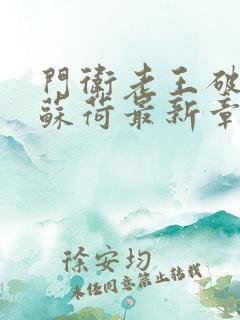 門衛老王破
蘇荷最新章
徐安均
未经同意禁止转载